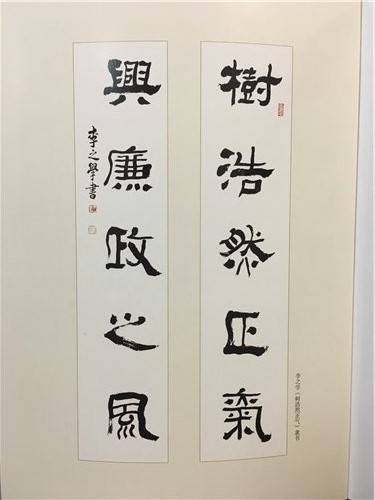 樹浩然正氣
興廉政之風
李之學書
李之学《树浩然正气》隶书